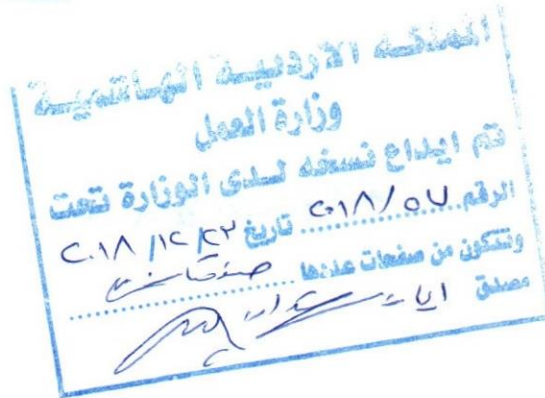 المملكة الاردنية الهاشمية
وزارة العمل
تم ايداع نسخه لدى الوزارة تحت
الرقم ٢٠١٨/٥٧ تاريخ ٢٠١٨/١٢/٢٣
وتتكون من صفحات عددها صفحتان
مصدق